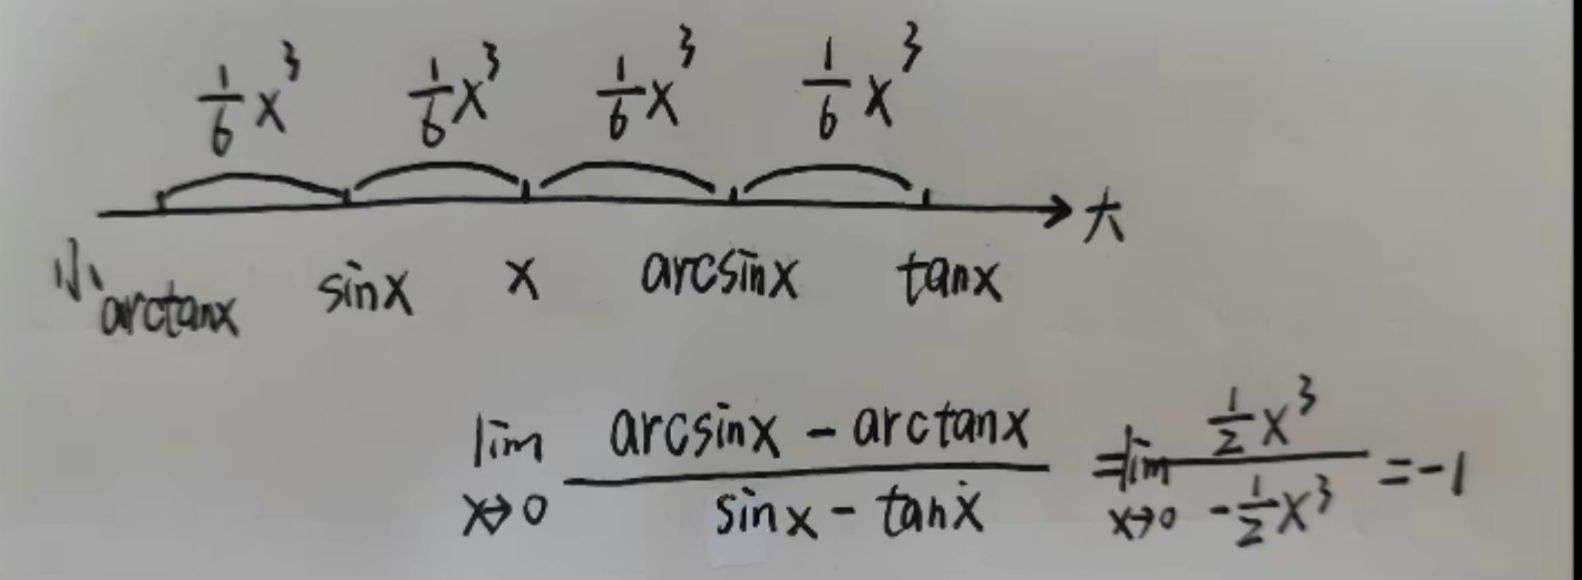 1/6 x³ 1/6 x³ 1/6 x³ 1/6 x³
小 大
arctanx sinx x arcsinx tanx
lim x→0 (arcsinx - arctanx)/(sinx - tanx) = lim x→0 (1/2 x³)/(-1/2 x³) = -1